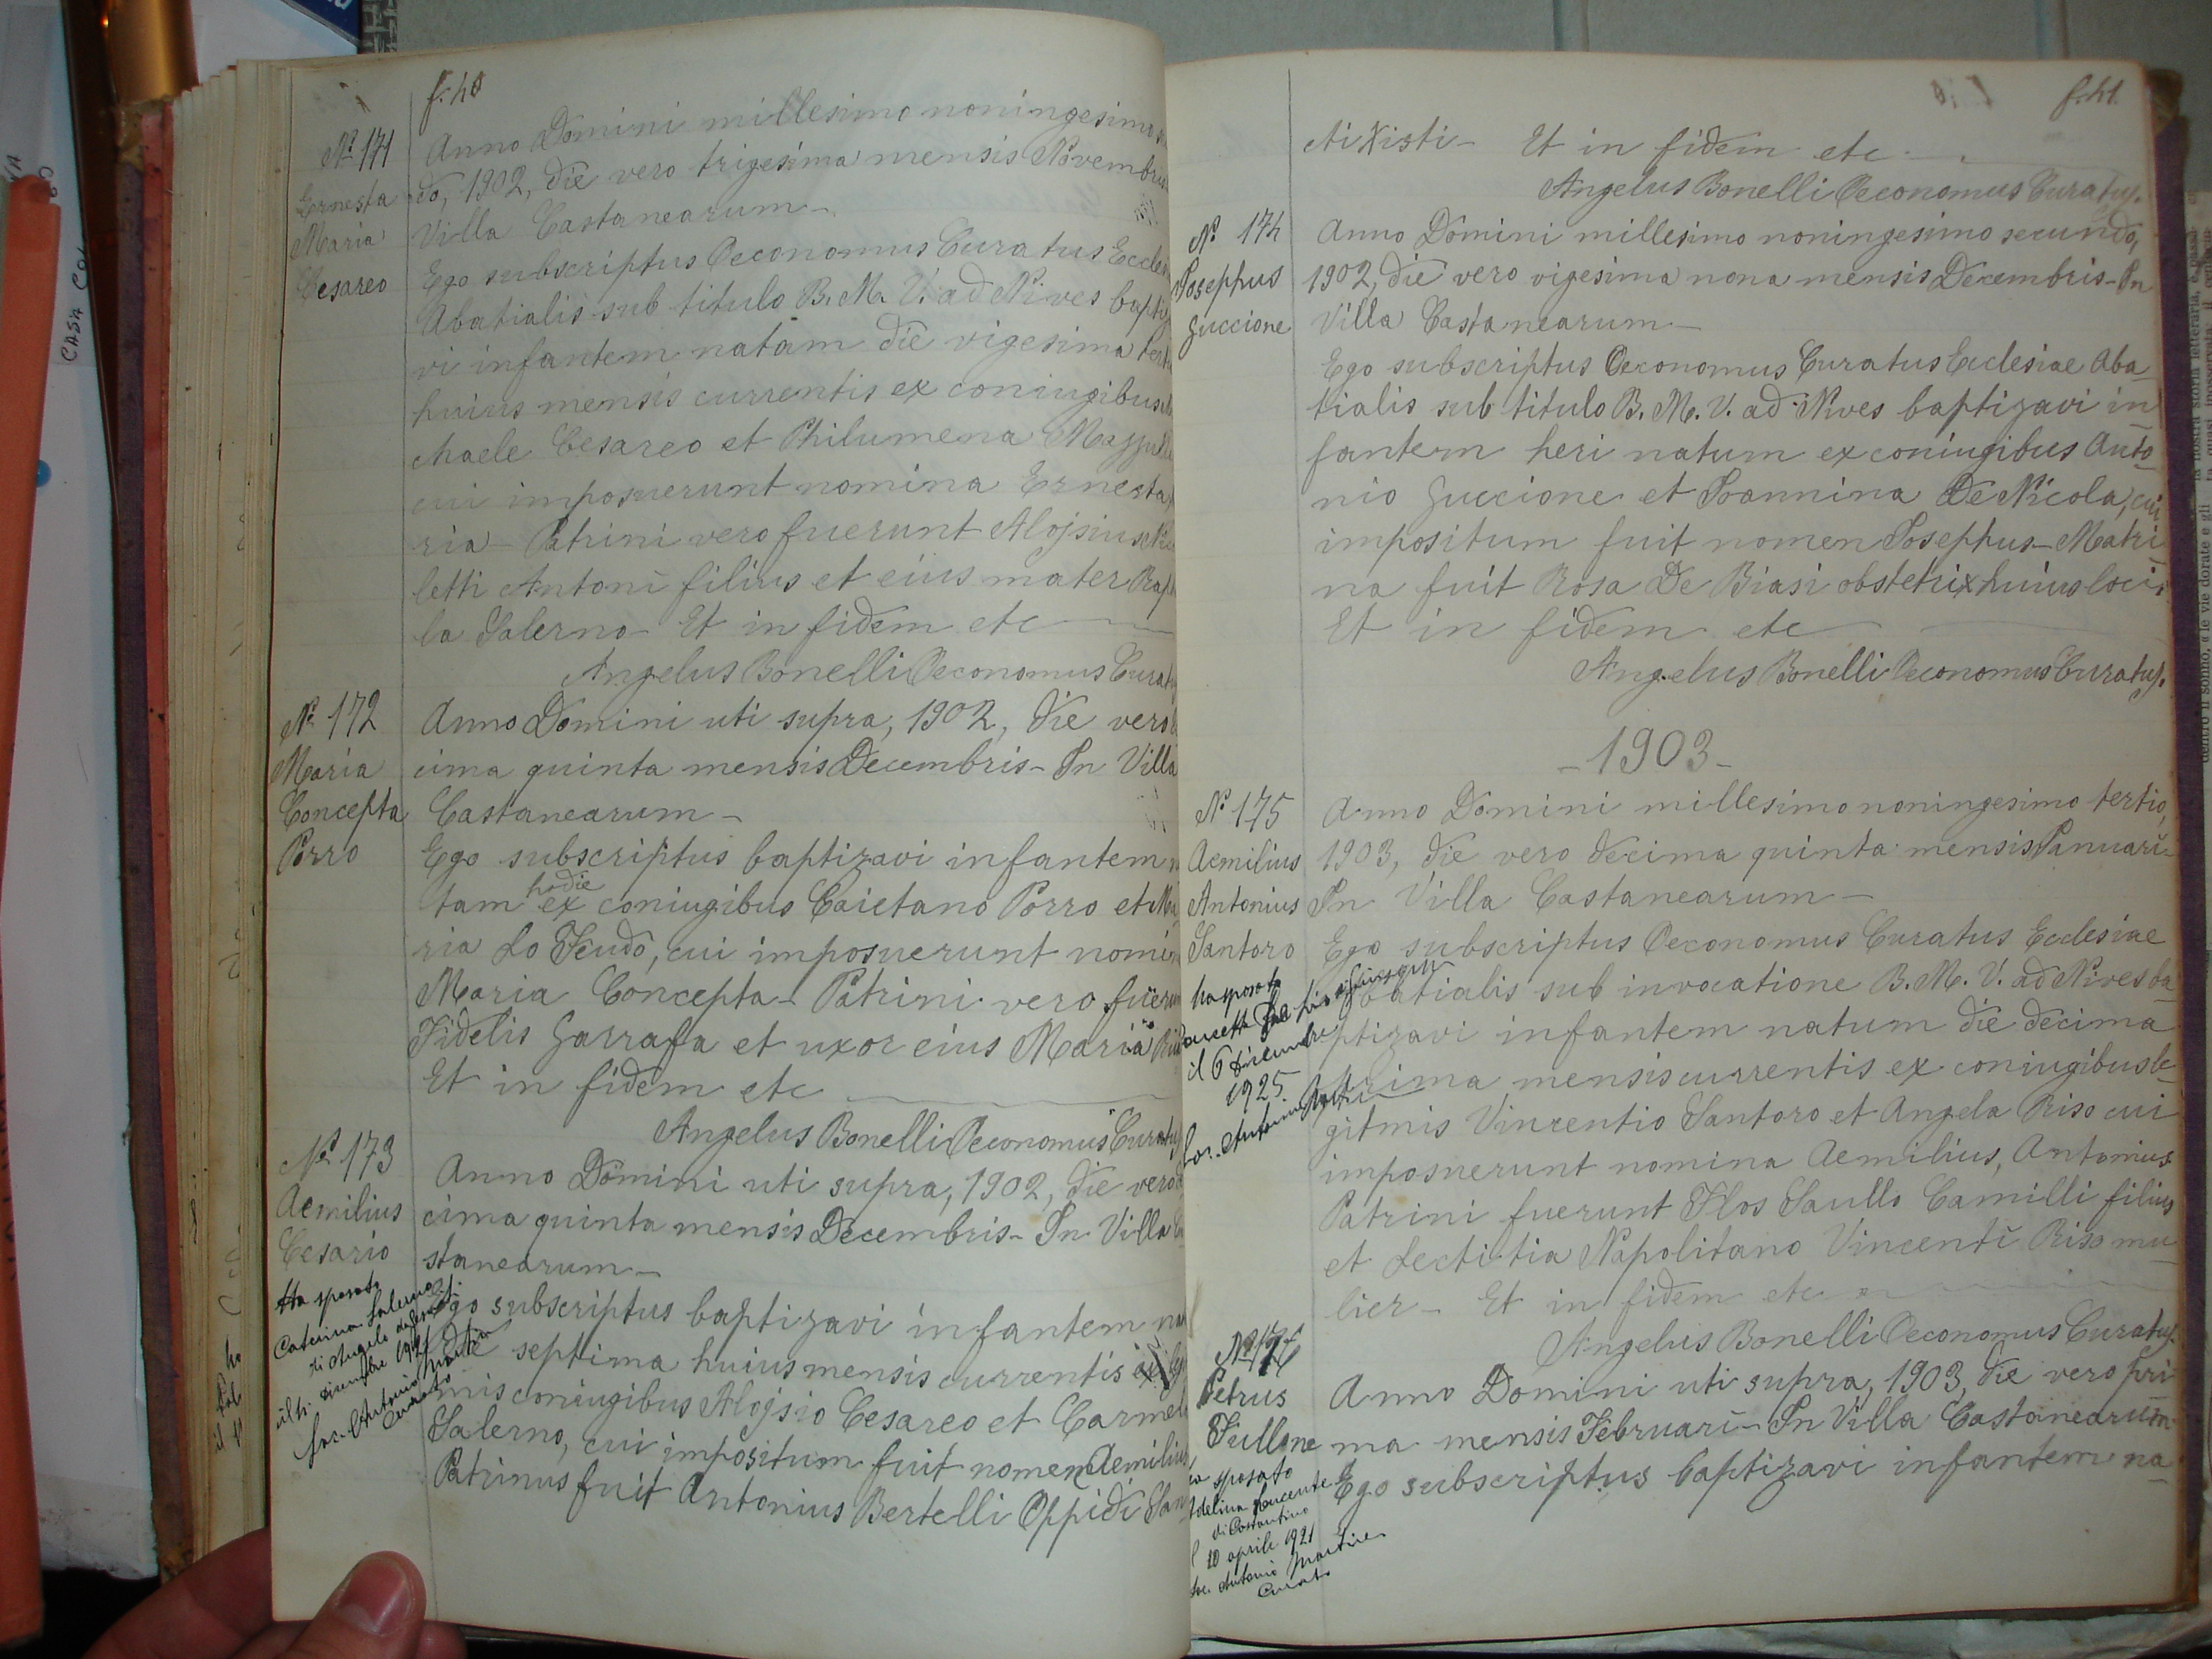 f. 40
Nº 171
Ernesta
Maria
Cesareo
Anno Domini millesimo noningesimo
do, 1902, die vero trigesima mensis Novembris
Villa Castanearum -
Ego subscriptus Oeconomus Curatus Eccles
Abatialis sub titulo B. M. V. ad Nives bapti
vi infantem natam die vigesima
huius mensis currentis ex coniugibus
chaele Cesareo et Philumena
cui imposuerunt nomina Ernesta
ria - Patrini vero fuerunt Alojsius
letti Antonî filius et eius mater Rap
la Salerno - Et in fidem etc
Angelus Bonelli Oeconomus Curatus
Nº 172
Maria
Concepta
Porro
Anno Domini uti supra, 1902, die vero
cima quinta mensis Decembris - In Villa
Castanearum -
Ego subscriptus baptizavi infantem
hodie
tam ex coniugibus Caietano Porro et Ma
ria Lo Feudo, cui imposuerunt nomin
Maria Concepta - Patrini vero fuerun
Fidelis Garrafa et uxor eius Maria
Et in fidem etc
Angelus Bonelli Oeconomus Curatus
Nº 173
Aemilius
Cesario
Ha sposato
Caterina Salerno
di Angelo
dicembre
Sac. Antonio Martire
Curato
Anno Domini uti supra, 1902, die vero
cima quinta mensis Decembris - In Villa Ca
stanearum -
Ego subscriptus baptizavi infantem na
die septima huius mensis currentis
mis coniugibus Alojsio Cesareo et Carmel
Salerno, cui impositum fuit nomen Aemilius
Patrinus fuit Antonius Bertelli Oppidi San
f. 41.
cti Xisti - Et in fidem etc
Angelus Bonelli Oeconomus Curatus.
Nº 174
Josephus
Guccione
Anno Domini millesimo noningesimo secundo,
1902, die vero vigesima nona mensis Decembris - In
Villa Castanearum -
Ego subscriptus Oeconomus Curatus Ecclesiae Aba-
tialis sub titulo B. M. V. ad Nives baptizavi in
fantem heri natum ex coniugibus Anto-
nio Guccione et Joannina De Nicola, cui
impositum fuit nomen Josephus - Matri
na fuit Rosa De Biasi obstetrix huius loci.
Et in fidem etc
Angelus Bonelli Oeconomus Curatus.
- 1903 -
Nº 175
Aemilius
Antonius
Santoro
ha sposato
il 6 dicembre
1925
Sac. Antonio Martire
Anno Domini millesimo noningesimo tertio,
1903, die vero decima quinta mensis Januarî -
In Villa Castanearum -
Ego subscriptus Oeconomus Curatus Ecclesiae
Abatialis sub invocatione B. M. V. ad Nives ba-
ptizavi infantem natum die decima
prima mensis currentis ex coniugibus le-
gitmis Vincentio Santoro et Angela Riso cui
imposuerunt nomina Aemilius, Antonius
Patrini fuerunt Flos Saullo Camilli filius
et Lectitia Napolitano Vincentî Riso mu-
lier - Et in fidem etc
Angelus Bonelli Oeconomus Curatus.
Nº 176
Petrus
Fullone
ha sposato
Adelina
di Costantino
10 aprile 1921
Sac. Antonio Martire
Curato
Anno Domini uti supra, 1903, die vero pri
ma mensis Februarî - In Villa Castanearum -
Ego subscriptus baptizavi infantem na-